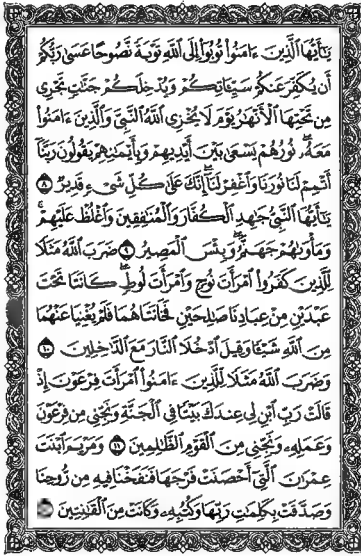 يَـٰٓأَيُّهَا ٱلَّذِينَ ءَامَنُوا۟ تُوبُوٓا۟ إِلَى ٱللَّهِ تَوْبَةً نَّصُوحًا عَسَىٰ رَبُّكُمْ
أَن يُكَفِّرَ عَنكُمْ سَيِّـَٔاتِكُمْ وَيُدْخِلَكُمْ جَنَّـٰتٍ تَجْرِى
مِن تَحْتِهَا ٱلْأَنْهَـٰرُ يَوْمَ لَا يُخْزِى ٱللَّهُ ٱلنَّبِىَّ وَٱلَّذِينَ ءَامَنُوا۟
مَعَهُۥ ۖ نُورُهُمْ يَسْعَىٰ بَيْنَ أَيْدِيهِمْ وَبِأَيْمَـٰنِهِمْ يَقُولُونَ رَبَّنَآ
أَتْمِمْ لَنَا نُورَنَا وَٱغْفِرْ لَنَآ ۖ إِنَّكَ عَلَىٰ كُلِّ شَىْءٍ قَدِيرٌ ٨
يَـٰٓأَيُّهَا ٱلنَّبِىُّ جَـٰهِدِ ٱلْكُفَّارَ وَٱلْمُنَـٰفِقِينَ وَٱغْلُظْ عَلَيْهِمْ ۚ
وَمَأْوَىٰهُمْ جَهَنَّمُ ۖ وَبِئْسَ ٱلْمَصِيرُ ٩ ضَرَبَ ٱللَّهُ مَثَلًا
لِّلَّذِينَ كَفَرُوا۟ ٱمْرَأَتَ نُوحٍ وَٱمْرَأَتَ لُوطٍ ۖ كَانَتَا تَحْتَ
عَبْدَيْنِ مِنْ عِبَادِنَا صَـٰلِحَيْنِ فَخَانَتَاهُمَا فَلَمْ يُغْنِيَا عَنْهُمَا
مِنَ ٱللَّهِ شَيْـًٔا وَقِيلَ ٱدْخُلَا ٱلنَّارَ مَعَ ٱلدَّٰخِلِينَ ١٠
وَضَرَبَ ٱللَّهُ مَثَلًا لِّلَّذِينَ ءَامَنُوا۟ ٱمْرَأَتَ فِرْعَوْنَ إِذْ
قَالَتْ رَبِّ ٱبْنِ لِى عِندَكَ بَيْتًا فِى ٱلْجَنَّةِ وَنَجِّنِى مِن فِرْعَوْنَ
وَعَمَلِهِۦ وَنَجِّنِى مِنَ ٱلْقَوْمِ ٱلظَّـٰلِمِينَ ١١ وَمَرْيَمَ ٱبْنَتَ
عِمْرَٰنَ ٱلَّتِىٓ أَحْصَنَتْ فَرْجَهَا فَنَفَخْنَا فِيهِ مِن رُّوحِنَا
وَصَدَّقَتْ بِكَلِمَـٰتِ رَبِّهَا وَكُتُبِهِۦ وَكَانَتْ مِنَ ٱلْقَـٰنِتِينَ